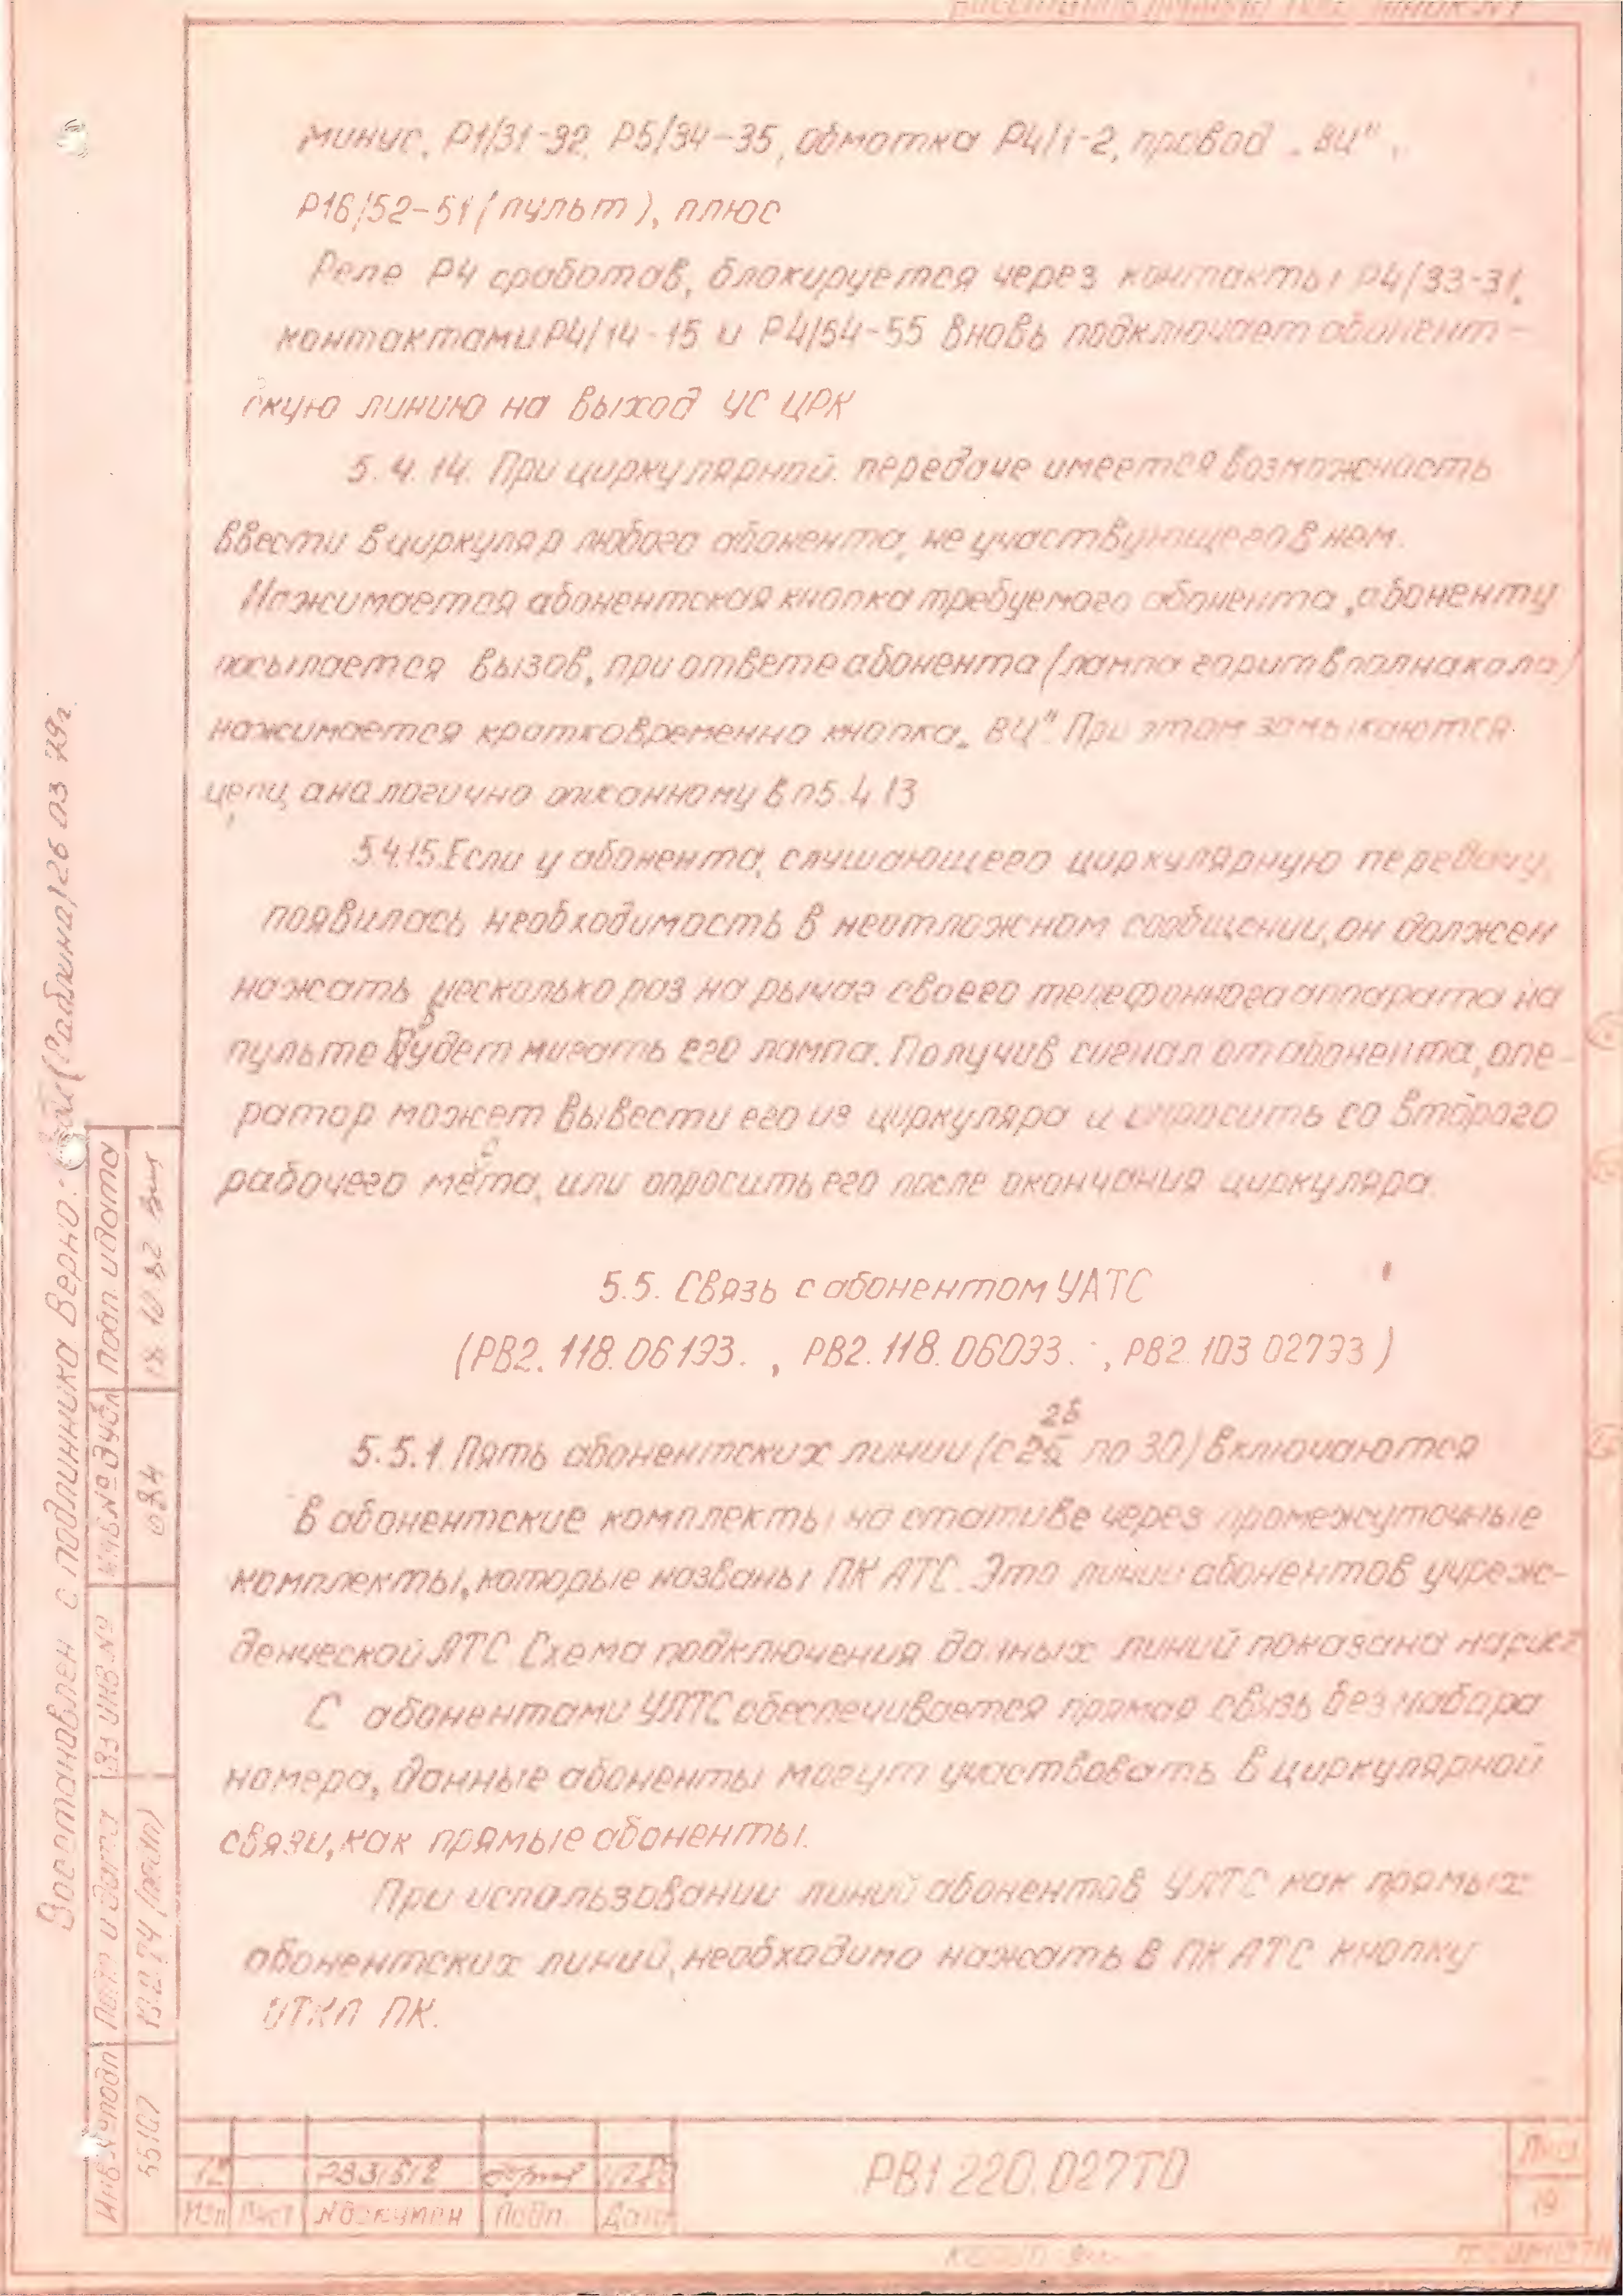 минус, Р1/31-32, Р5/34-35, обмотка Р4/1-2, провод „ВЦ",
Р16/52-51 (пульт), плюс
Реле Р4 сработав, блокируется через контакты Р4/33-31,
контактами Р4/14-15 и Р4/54-55 вновь подключает абонент-
скую линию на выход УС ЦРК
5.4.14. При циркулярной передаче имеется возможность
ввести в циркуляр любого абонента, не участвующего в нем.
Нажимается абонентская кнопка требуемого абонента, абоненту
посылается вызов, при ответе абонента (лампа горит вполнакала)
нажимается кратковременно кнопка „ВЦ". При этом замыкаются
цепи, аналогично описанному в п5.4.13
5.4.15. Если у абонента, слушающего циркулярную передачу,
появилась необходимость в неотложном сообщении, он должен
нажать несколько раз на рычаг своего телефонного аппарата на
пульте будет мигать его лампа. Получив сигнал от абонента, опе-
ратор может вывести его из циркуляра и опросить со второго
рабочего места, или опросить его после окончания циркуляра.
5.5. Связь с абонентом УАТС
(РВ2.118.06193. , РВ2.118.06033. , РВ2.103 02733)
26
5.5.1. Пять абонентских линии (с 26 по 30) включаются
в абонентские комплекты на стативе через промежуточные
комплекты, которые названы ПК АТС. Это линии абонентов учреж-
денческой АТС Схема подключения данных линий показана на рис 2
С абонентами УАТС обеспечивается прямая связь без набора
номера, данные абоненты могут участвовать в циркулярной
связи, как прямые абоненты.
При использовании линий абонентов УАТС как прямых
абонентских линий, необходимо нажать в ПК АТС кнопку
ОТКЛ ПК.
Восстановлен с подлинника Верно: (Рабкина) 26 03 79г.
Инв № подл
Подп и дата
Вз инв №
Инв № дубл
Подп. и дата
55107
13.12.74
034
12
РВ31512
Изм
Лист
N докумен
Подп.
Дата
РВ1.220.027ТО
Лист
19